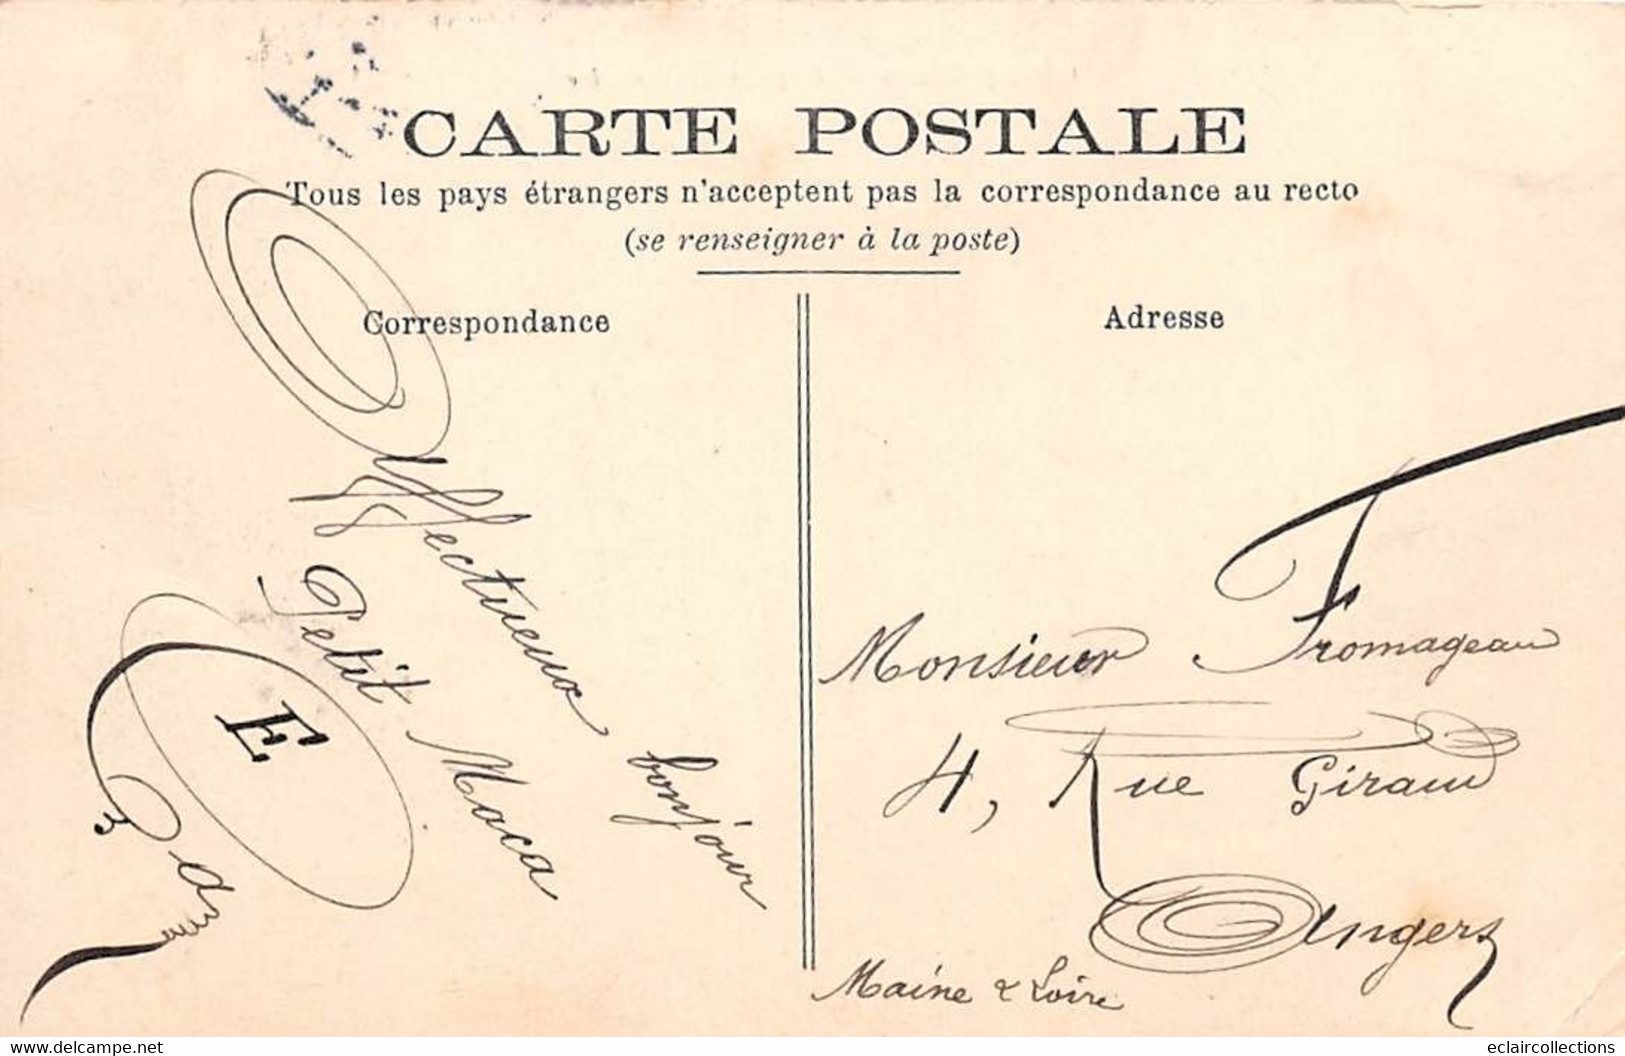 CARTE POSTALE
Tous les pays étrangers n'acceptent pas la correspondance au recto
(se renseigner à la poste)
Correspondance
Affectueux bonjour
Petit Maca
E
Adresse
Monsieur Fromageau
4, Rue Giraud
Angers
Maine & Loire
www.delcampe.net
eclaircollections